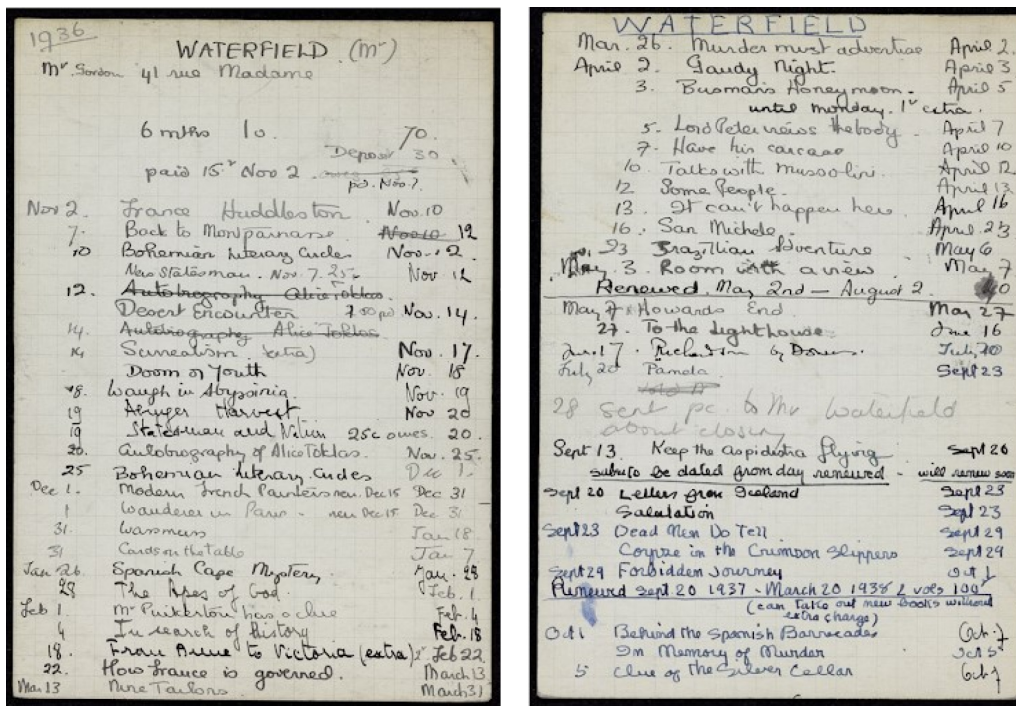 1936
WATERFIELD (Mr)
Mr Gordon 41 rue Madame
6 mths 1 v. 70.
Deposit 30
paid 15 Nov 2
pd. Nov. 7.
Nov 2. France Huddleston Nov. 10
7. Back to Montparnasse Nov 10 12
10 Bohemian Literary Circles Nov. 12.
New Statesman. Nov. 7. 25c Nov 12
12. Autobiography Alice Toklas
Desert Encounter pd. Nov. 14.
14. Autobiography Alice Toklas
14 Surrealism (extra) Nov. 17.
Doom of Youth Nov. 18
18. Waugh in Abyssinia Nov. 19
19 Abinger Harvest Nov 20
19 Statesman and Nation 25c owes. 20.
20. Autobiography of Alice Toklas. Nov. 25.
25 Bohemian Literary Circles Dec 1.
Dec 1. Modern French Painters ren. Dec 15 Dec 31
1 Wanderer in Paris - ren Dec 15 Dec 31
31. Wassmuss Jan 18.
31 Cards on the Table Jan 7
Jan 26. Spanish Cape Mystery. Jan. 28
28 The Apes of God. Feb. 1.
Feb 1. Mr Pinkerton has a clue Feb. 4
4 In search of History Feb. 18
18. From Anne to Victoria (extra) Feb 22.
22. How France is governed. March 13
Mar 13 Nine Tailors. March 31
WATERFIELD
Mar. 26. Murder must advertise April 2.
April 2. Gaudy Night. April 3
3. Busman's Honeymoon. April 5
until monday. 1 extra.
5. Lord Peter views the body. April 7
7. Have his carcase April 10
10. Talks with Mussolini. April 12
12 Some People. April 13
13. It can't happen here. April 16
16. San Michele. April 23
23 Brazilian Adventure May 6
May 3. Room with a view. May 7
Renewed. May 2nd — August 2.
May 7 Howards End. May 27
27. To the Lighthouse June 16
June 17. Richardson by Downs. July 20
July 20 Pamela. Sept 23
28 sent p.c. to Mr Waterfield
about closing
Sept 13. Keep the Aspidistra flying Sept 20
subs to be dated from day renewed - will renew soon
Sept 20 Letters from Iceland Sept 23
Salutation Sept 23
Sept 23 Dead Men Do Tell Sept 29
Corpse in the Crimson Slippers Sept 29
Sept 29 Forbidden Journey Oct 1
Renewed Sept. 20 1937 - March 20 1938 2 vols 100
(can take out new books without
extra charge)
Oct 1 Behind the Spanish Barricades Oct. 7
In Memory of Murder Oct 5
5 Clue of the Silver Cellar Oct 7